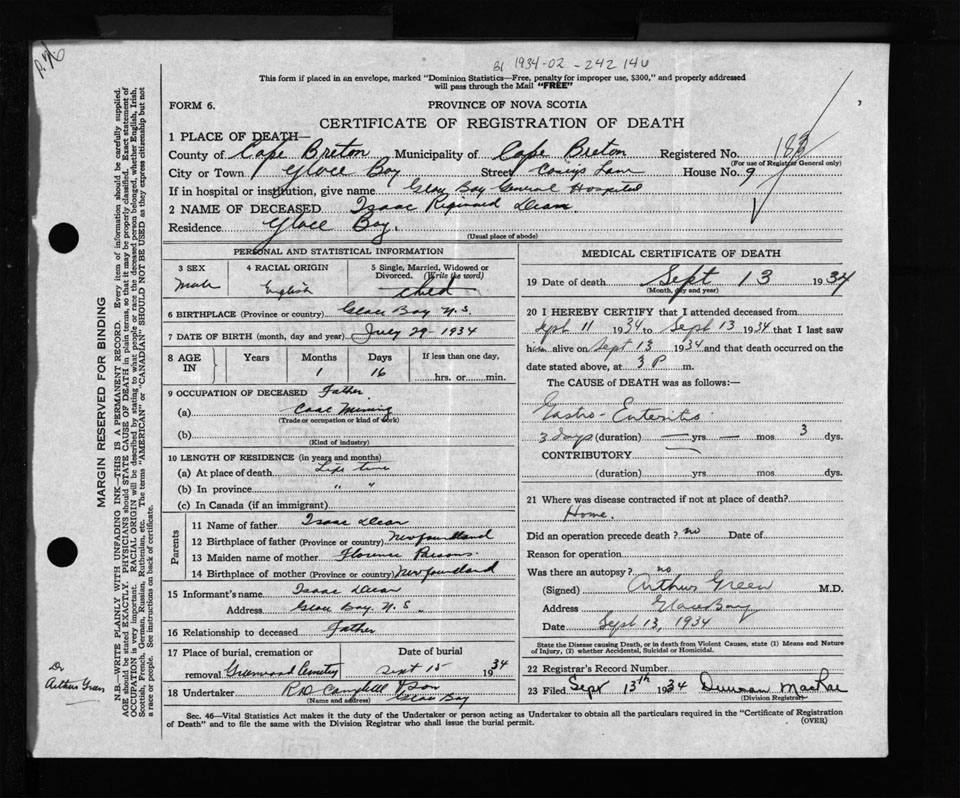 B1 1934-02-24214U
This form if placed in an envelope, marked "Dominion Statistics—Free, penalty for improper use, $300," and properly addressed
will pass through the Mail "FREE"
FORM 6.
PROVINCE OF NOVA SCOTIA
CERTIFICATE OF REGISTRATION OF DEATH
1 PLACE OF DEATH—
County of Cape Breton Municipality of Cape Breton Registered No. 183
(For use of Registrar General only)
City or Town Glace Bay Street Lane House No. 9
If in hospital or institution, give name Glace Bay General Hospital
2 NAME OF DECEASED Isaac Reginald Dean
Residence Glace Bay.
(Usual place of abode)
PERSONAL AND STATISTICAL INFORMATION
3 SEX Male
4 RACIAL ORIGIN English
5 Single, Married, Widowed or Divorced. (Write the word) Child
6 BIRTHPLACE (Province or country) Glace Bay N.S.
7 DATE OF BIRTH (month, day and year) July 29 - 1934
8 AGE IN
Years Months Days If less than one day,
1 16 hrs. or min.
9 OCCUPATION OF DECEASED Father
(a) Coal Mining
(Trade or occupation or kind of work)
(b)
(Kind of industry)
10 LENGTH OF RESIDENCE (in years and months)
(a) At place of death Life time
(b) In province " "
(c) In Canada (if an immigrant)
Parents
11 Name of father Isaac Dean
12 Birthplace of father (Province or country) Newfoundland
13 Maiden name of mother Florence Parsons.
14 Birthplace of mother (Province or country) Newfoundland
15 Informant's name Isaac Dean
Address Glace Bay. N.S.
16 Relationship to deceased Father
17 Place of burial, cremation or
removal Greenwood Cemetery Sept 15 1934
18 Undertaker Campbell & Son
(Name and address) Glace Bay
MEDICAL CERTIFICATE OF DEATH
19 Date of death Sept 13 1934
(Month, day and year)
20 I HEREBY CERTIFY that I attended deceased from
Sept 11 1934 to Sept 13 1934 that I last saw
him alive on Sept 13 1934 and that death occurred on the
date stated above, at 3 P m.
The CAUSE of DEATH was as follows:—
Gastro-Enteritis.
3 days (duration) — yrs — mos 3 dys.
CONTRIBUTORY
(duration) yrs mos dys.
21 Where was disease contracted if not at place of death?
Home.
Did an operation precede death? no Date of
Reason for operation
Was there an autopsy? no
(Signed) Arthur Green M.D.
Address Glace Bay
Date Sept 13, 1934
State the Disease causing Death, or in death from Violent Causes, state (1) Means and Nature
of Injury, (2) whether Accidental, Suicidal or Homicidal.
22 Registrar's Record Number
23 Filed Sept 13th 1934 Duncan MacRae
(Division Registrar)
Sec. 46—Vital Statistics Act makes it the duty of the Undertaker or person acting as Undertaker to obtain all the particulars required in the "Certificate of Registration
of Death" and to file the same with the Division Registrar who shall issue the burial permit.
(OVER)
MARGIN RESERVED FOR BINDING
N.B.—WRITE PLAINLY WITH UNFADING INK—THIS IS A PERMANENT RECORD. Every item of information should be carefully supplied.
AGE should be stated EXACTLY. PHYSICIANS should STATE CAUSE OF DEATH in plain terms, so that it may be properly classified. Exact statement of
OCCUPATION is very important. RACIAL ORIGIN will be described by stating to what people or race the deceased person belonged, whether English, Irish,
Scottish, French, German, Russian, Ruthenian, etc. The terms "AMERICAN" or "CANADIAN" SHOULD NOT BE USED as they express citizenship but not
a race or people. See instructions on back of certificate.
Dr
Arthur Green